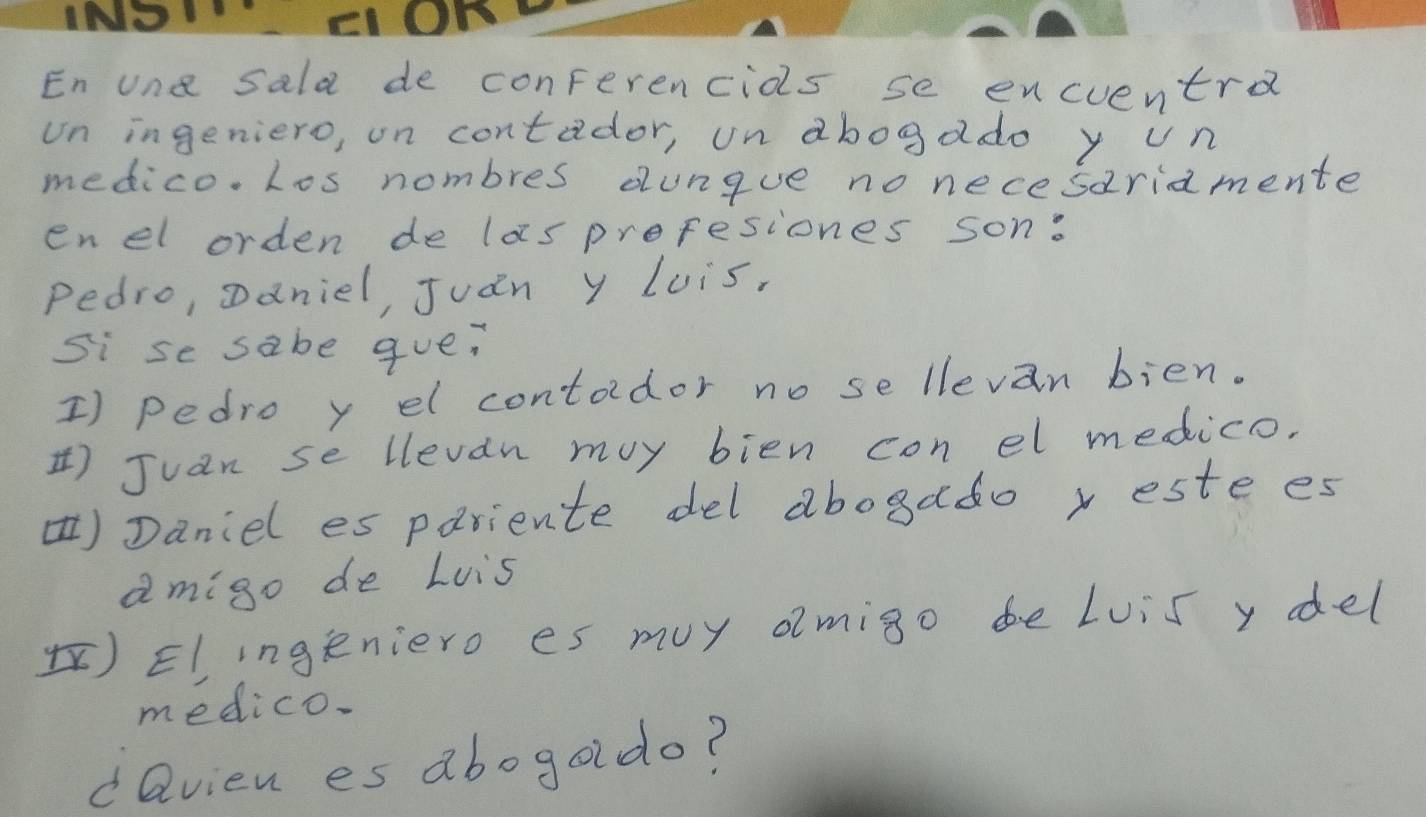 En una sala de conferencias se encuentra
un ingeniero, un contador, un abogado y un
medico. Los nombres aunque no necesariamente
en el orden de las profesiones son:
Pedro, Daniel, Juan y luis.
Si se sabe que:
I) Pedro y el contador no se llevan bien.
II) Juan se llevan muy bien con el medico.
III) Daniel es pariente del abogado y este es
amigo de Luis
IV) El, ingeniero es muy amigo de Luis y del
medico.
¿Quien es abogado?